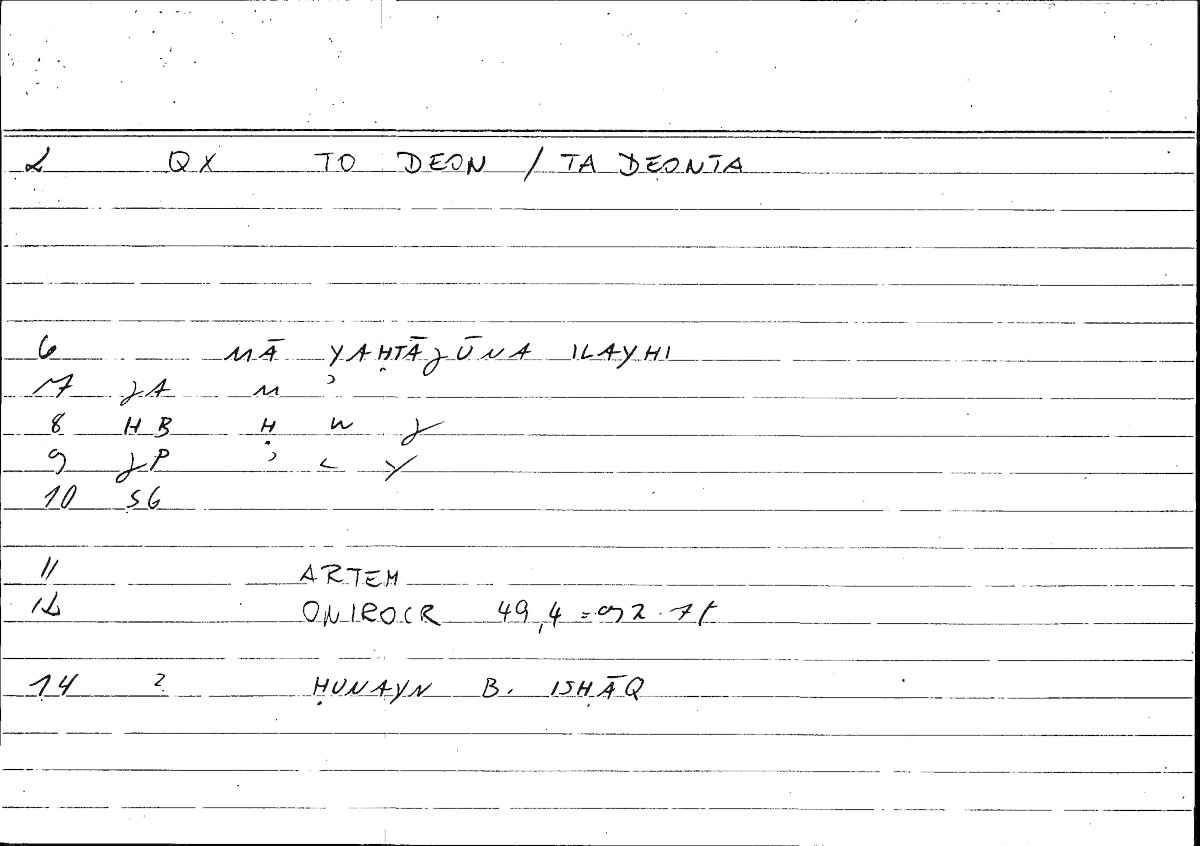 2 QX TO DEON / TA DEONTA
6 MĀ YAḤTĀJŪNA ILAYHI
7 JA M ʾ
8 HB Ḥ W J
9 JP ʾ L Y
10 SG
11 ARTEM
12 ONIROCR 49,4 = 92.7f
14 2 ḤUNAYN B. ISḤĀQ